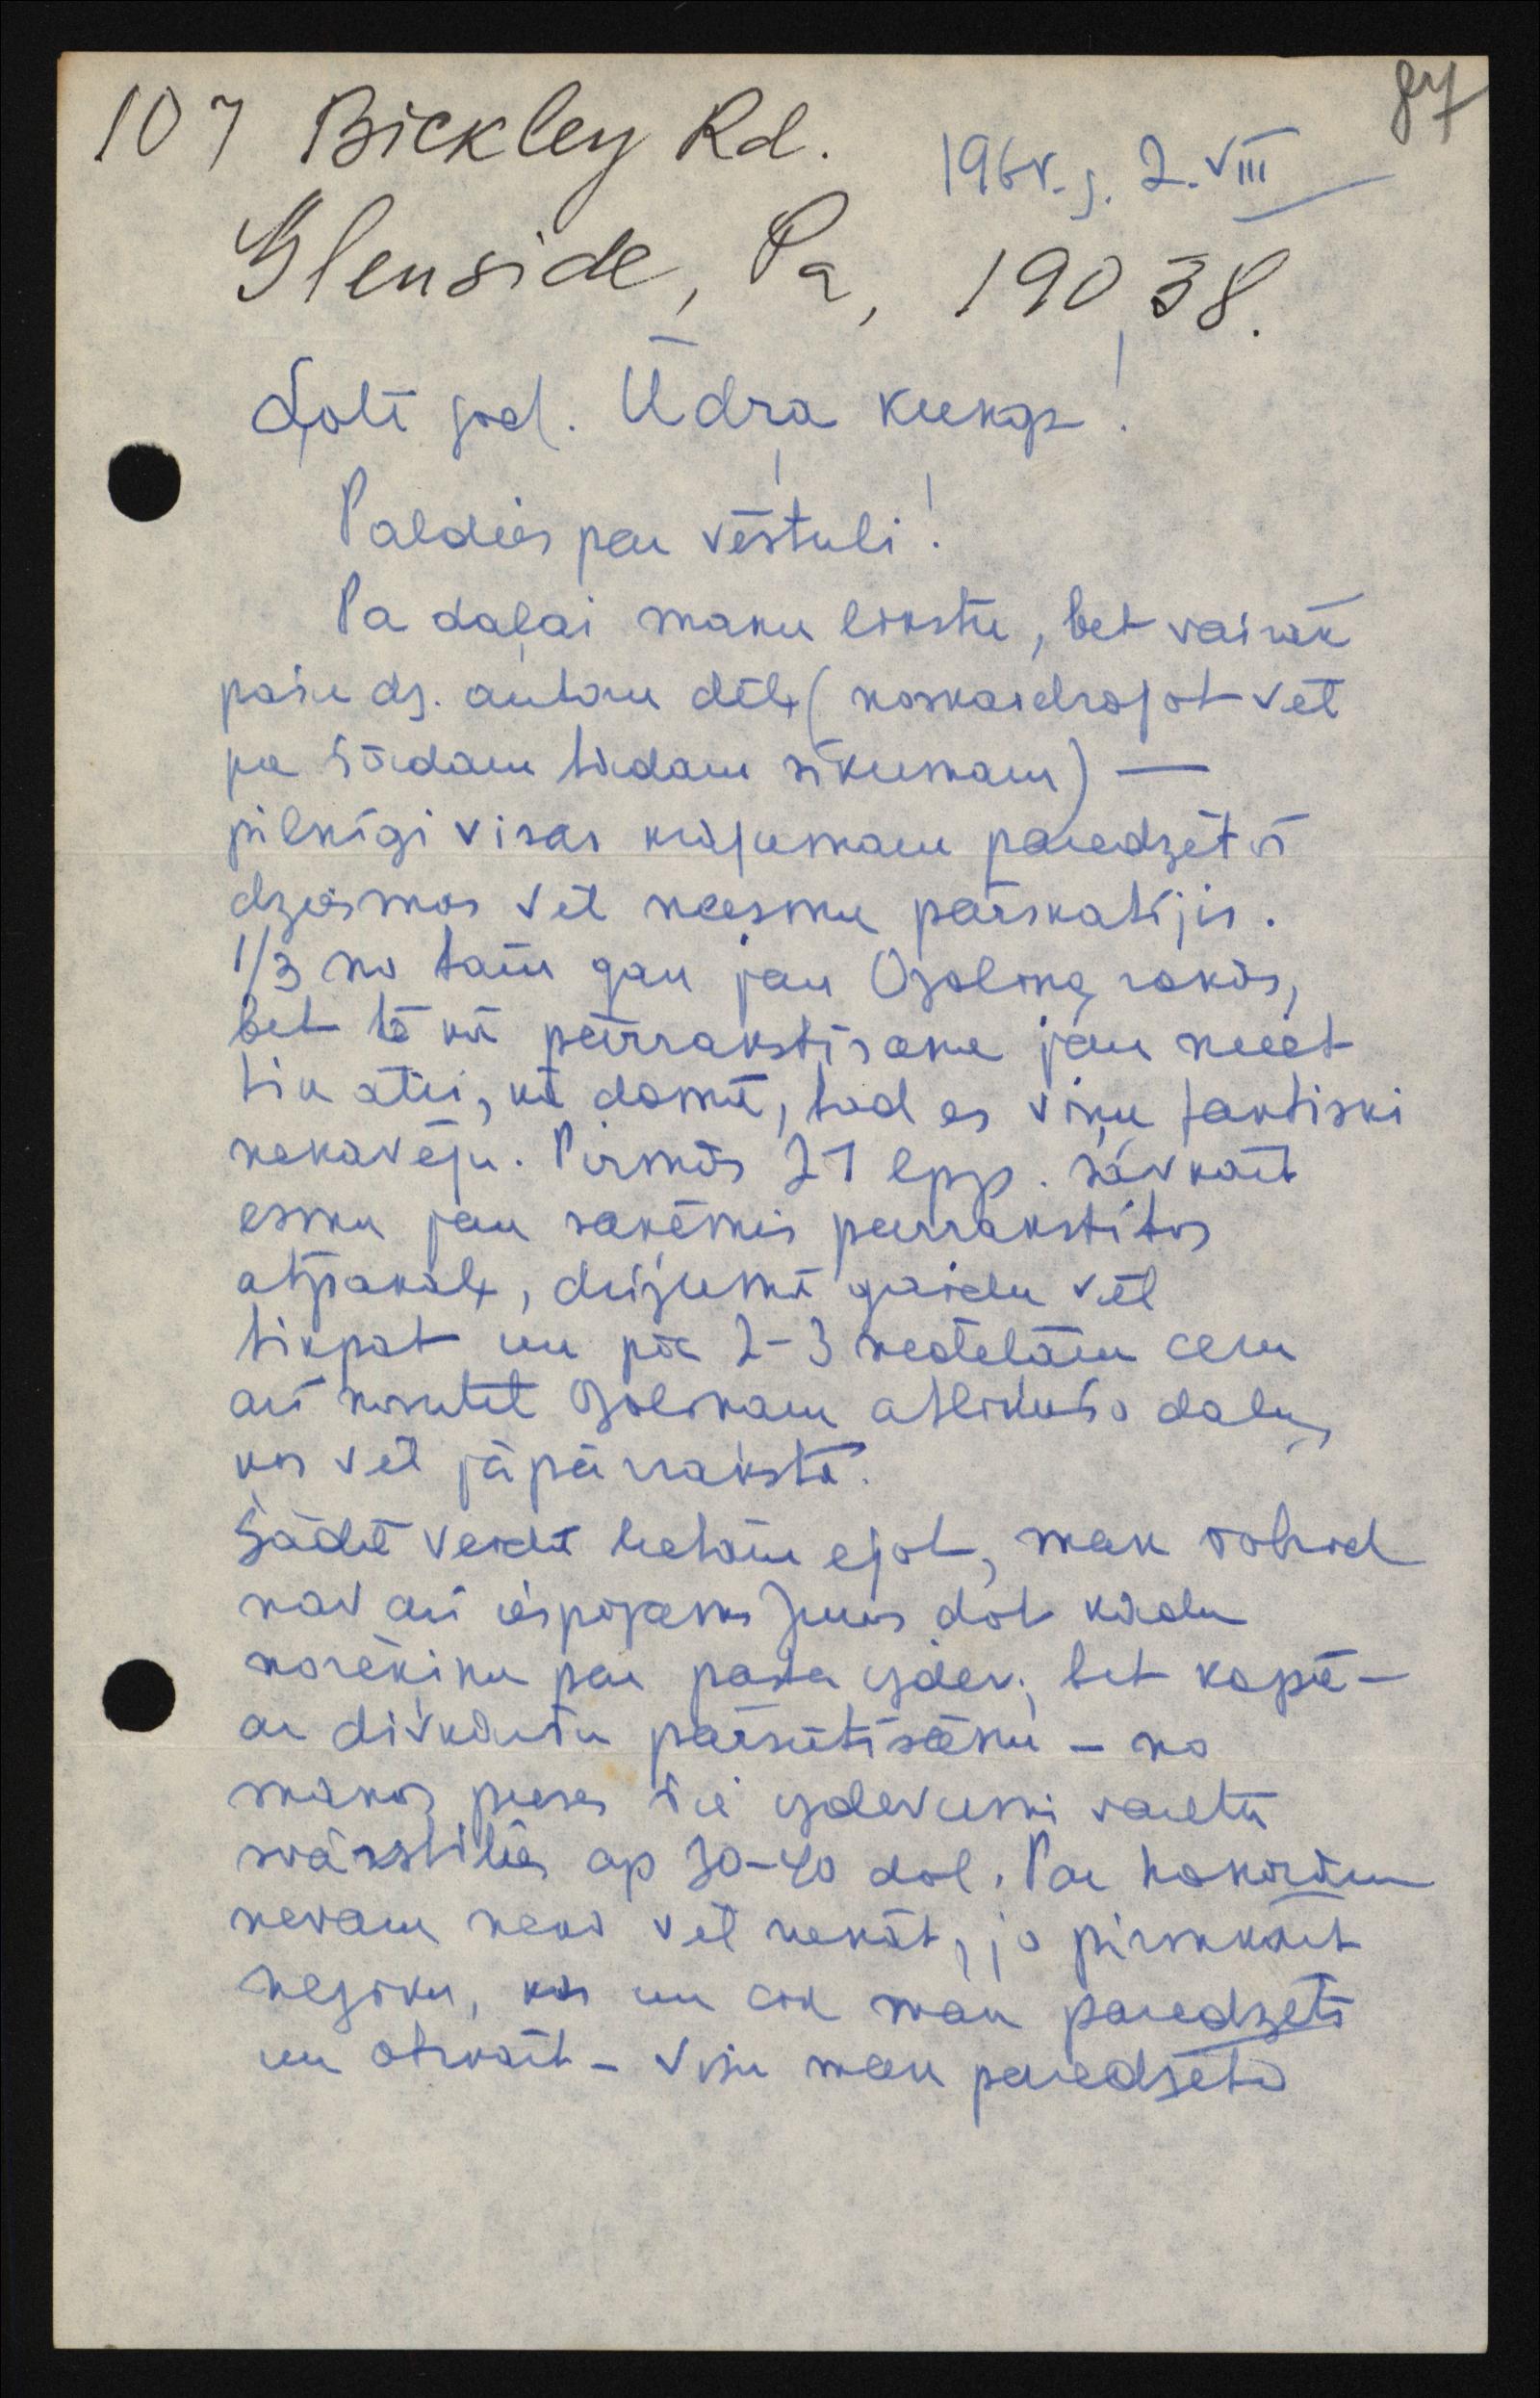 87
107 Bickley Rd.
196v. g. 2. VIII
Glenside, Pa, 19038.
Ļoti god. Ūdra kungs!
Paldies par vēstuli!
Pa daļai manu likstu, bet vairāk
pašu dz. autoru dēļ (noskaidrojot vēl
pa šādam tādam sīkumam) —
pilnīgi visas krājumam paredzētās
dziesmas vēl neesmu pārskatījis.
1/3 no tām gan jau Ozoliņa rokās,
bet tā kā pārrakstīšana jau neiet
tik ātri, kā domā, tad es viņu faktiski
nekavēju. Pirmās 21 lpp. savkārt
esmu jau saņēmis pārrakstītas
atpakaļ, drīzumā gaidu vēl
tikpat un pēc 2-3 nedēļām ceru
arī nosūtīt Ozoliņam atlikušo daļu,
kas vēl jāpārraksta.
Šādā veidā lietām ejot, man šobrīd
nav arī iespējams Jums dot kādu
norēķinu par pašu izdev., bet kopā –
ar divkāršu pārsūtīšanu – no
manas puses šie izdevumi varētu
svārstīties ap 30-40 dol. Par honorāru
nevaru neko vēl nekāt, jo pirmkārt
nezinu, kas un cik man paredzēts
un otrkārt – visu man paredzēto